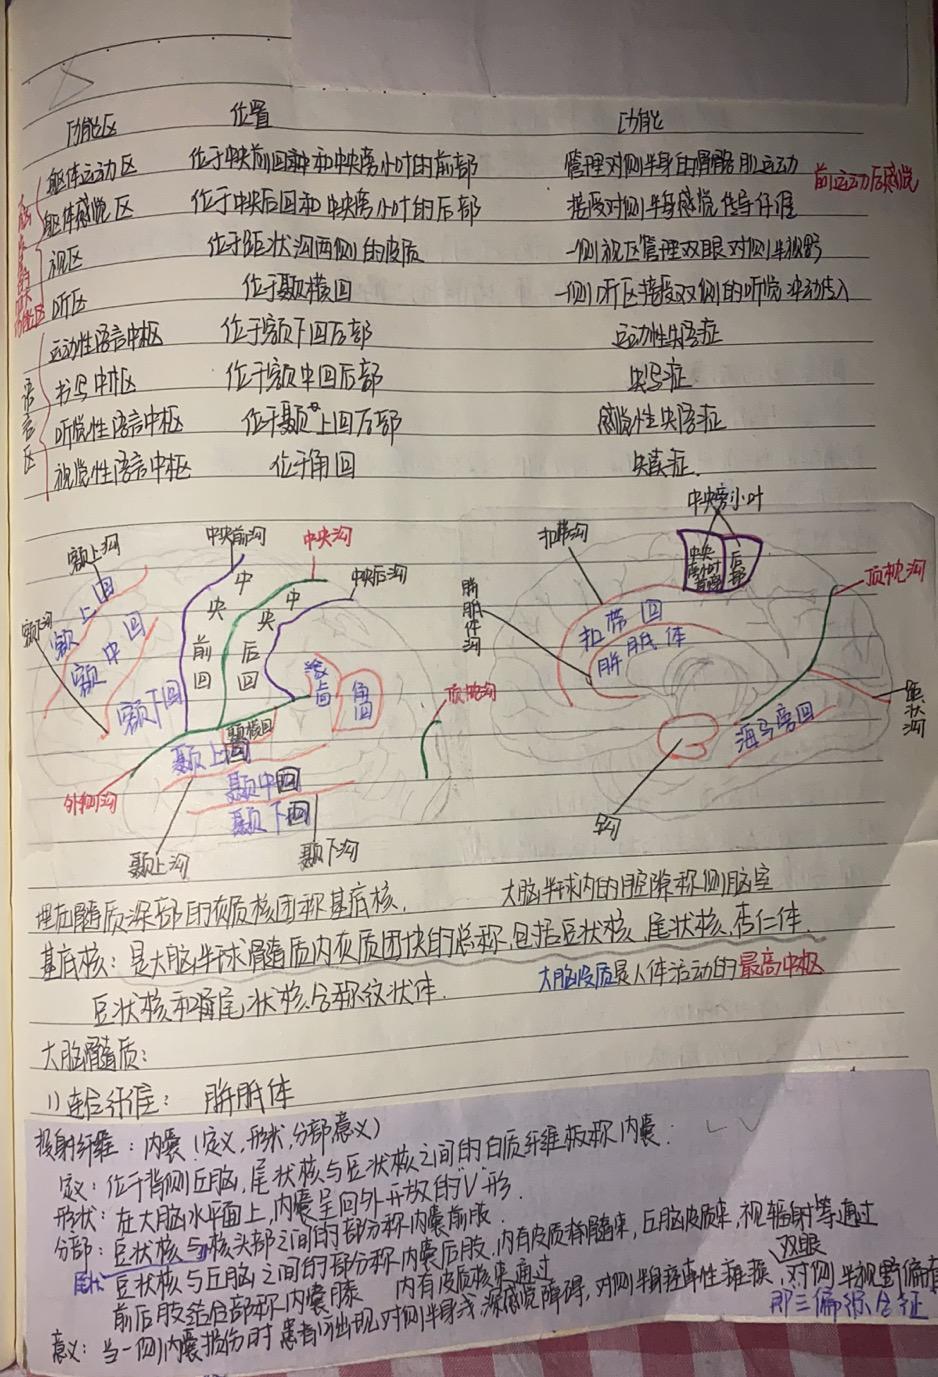 功能区 位置 功能
躯体运动区 位于中央前回和中央旁小叶的前部 管理对侧半身的骨骼肌运动 前运动后感觉
躯体感觉区 位于中央后回和中央旁小叶的后部 接受对侧半身感觉传导纤维
视区 位于距状沟两侧的皮质 一侧视区管理双眼对侧半视野
听区 位于颞横回 一侧听区接受双侧的听觉冲动传入
语言区
运动性语言中枢 位于额下回后部 运动性失语症
书写中枢 位于额中回后部 失写症
听觉性语言中枢 位于颞上回后部 感觉性失语症
视觉性语言中枢 位于角回 失读症
中央旁小叶
额上沟 中央前沟 中央沟 中央后沟 扣带沟 中央旁小叶前部 后部 顶枕沟
额下沟 额上回 额中回 额下回 中央前回 中央后回 缘上回 角回 胼胝体沟 扣带回 胼胝体
颞横回 顶枕沟 海马旁回 距状沟
颞上回
颞中回
外侧沟 颞下回 钩
颞上沟 颞下沟
埋在髓质深部的灰质核团称基底核. 大脑半球内的腔隙称侧脑室
基底核：是大脑半球髓质内灰质团块的总称,包括豆状核、尾状核、杏仁体.
豆状核和尾状核合称纹状体. 大脑皮质是人体活动的最高中枢
大脑髓质：
1）连合纤维： 胼胝体
投射纤维：内囊（定义,形状,分部意义）
定义：位于背侧丘脑,尾状核与豆状核之间的白质纤维板称内囊.
形状：在大脑水平面上,内囊呈向外开放的V形.
分部：豆状核与尾状核头部之间的部分称内囊前肢
豆状核与丘脑之间的部分称内囊后肢,内有皮质脊髓束,丘脑皮质束,视辐射等通过
前后肢结合部称内囊膝 内有皮质核束通过
意义：当一侧内囊损伤时患者可出现对侧半身浅深感觉障碍,对侧半身痉挛性瘫痪,双眼对侧半视野偏盲
即三偏综合征